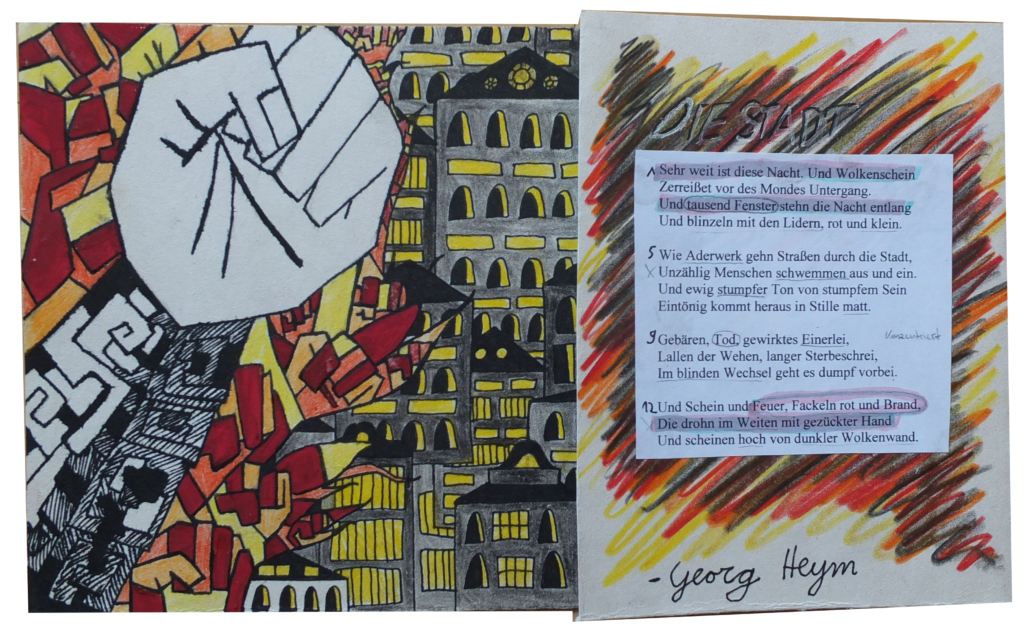 DIE STADT
1 Sehr weit ist diese Nacht. Und Wolkenschein
Zerreißet vor des Mondes Untergang.
Und tausend Fenster stehn die Nacht entlang
Und blinzeln mit den Lidern, rot und klein.
5 Wie Aderwerk gehn Straßen durch die Stadt,
Unzählig Menschen schwemmen aus und ein.
Und ewig stumpfer Ton von stumpfem Sein
Eintönig kommt heraus in Stille matt.
9 Gebären, Tod, gewirktes Einerlei,
Lallen der Wehen, langer Sterbeschrei,
Im blinden Wechsel geht es dumpf vorbei.
12 Und Schein und Feuer, Fackeln rot und Brand,
Die drohn im Weiten mit gezückter Hand
Und scheinen hoch von dunkler Wolkenwand.
- Georg Heym